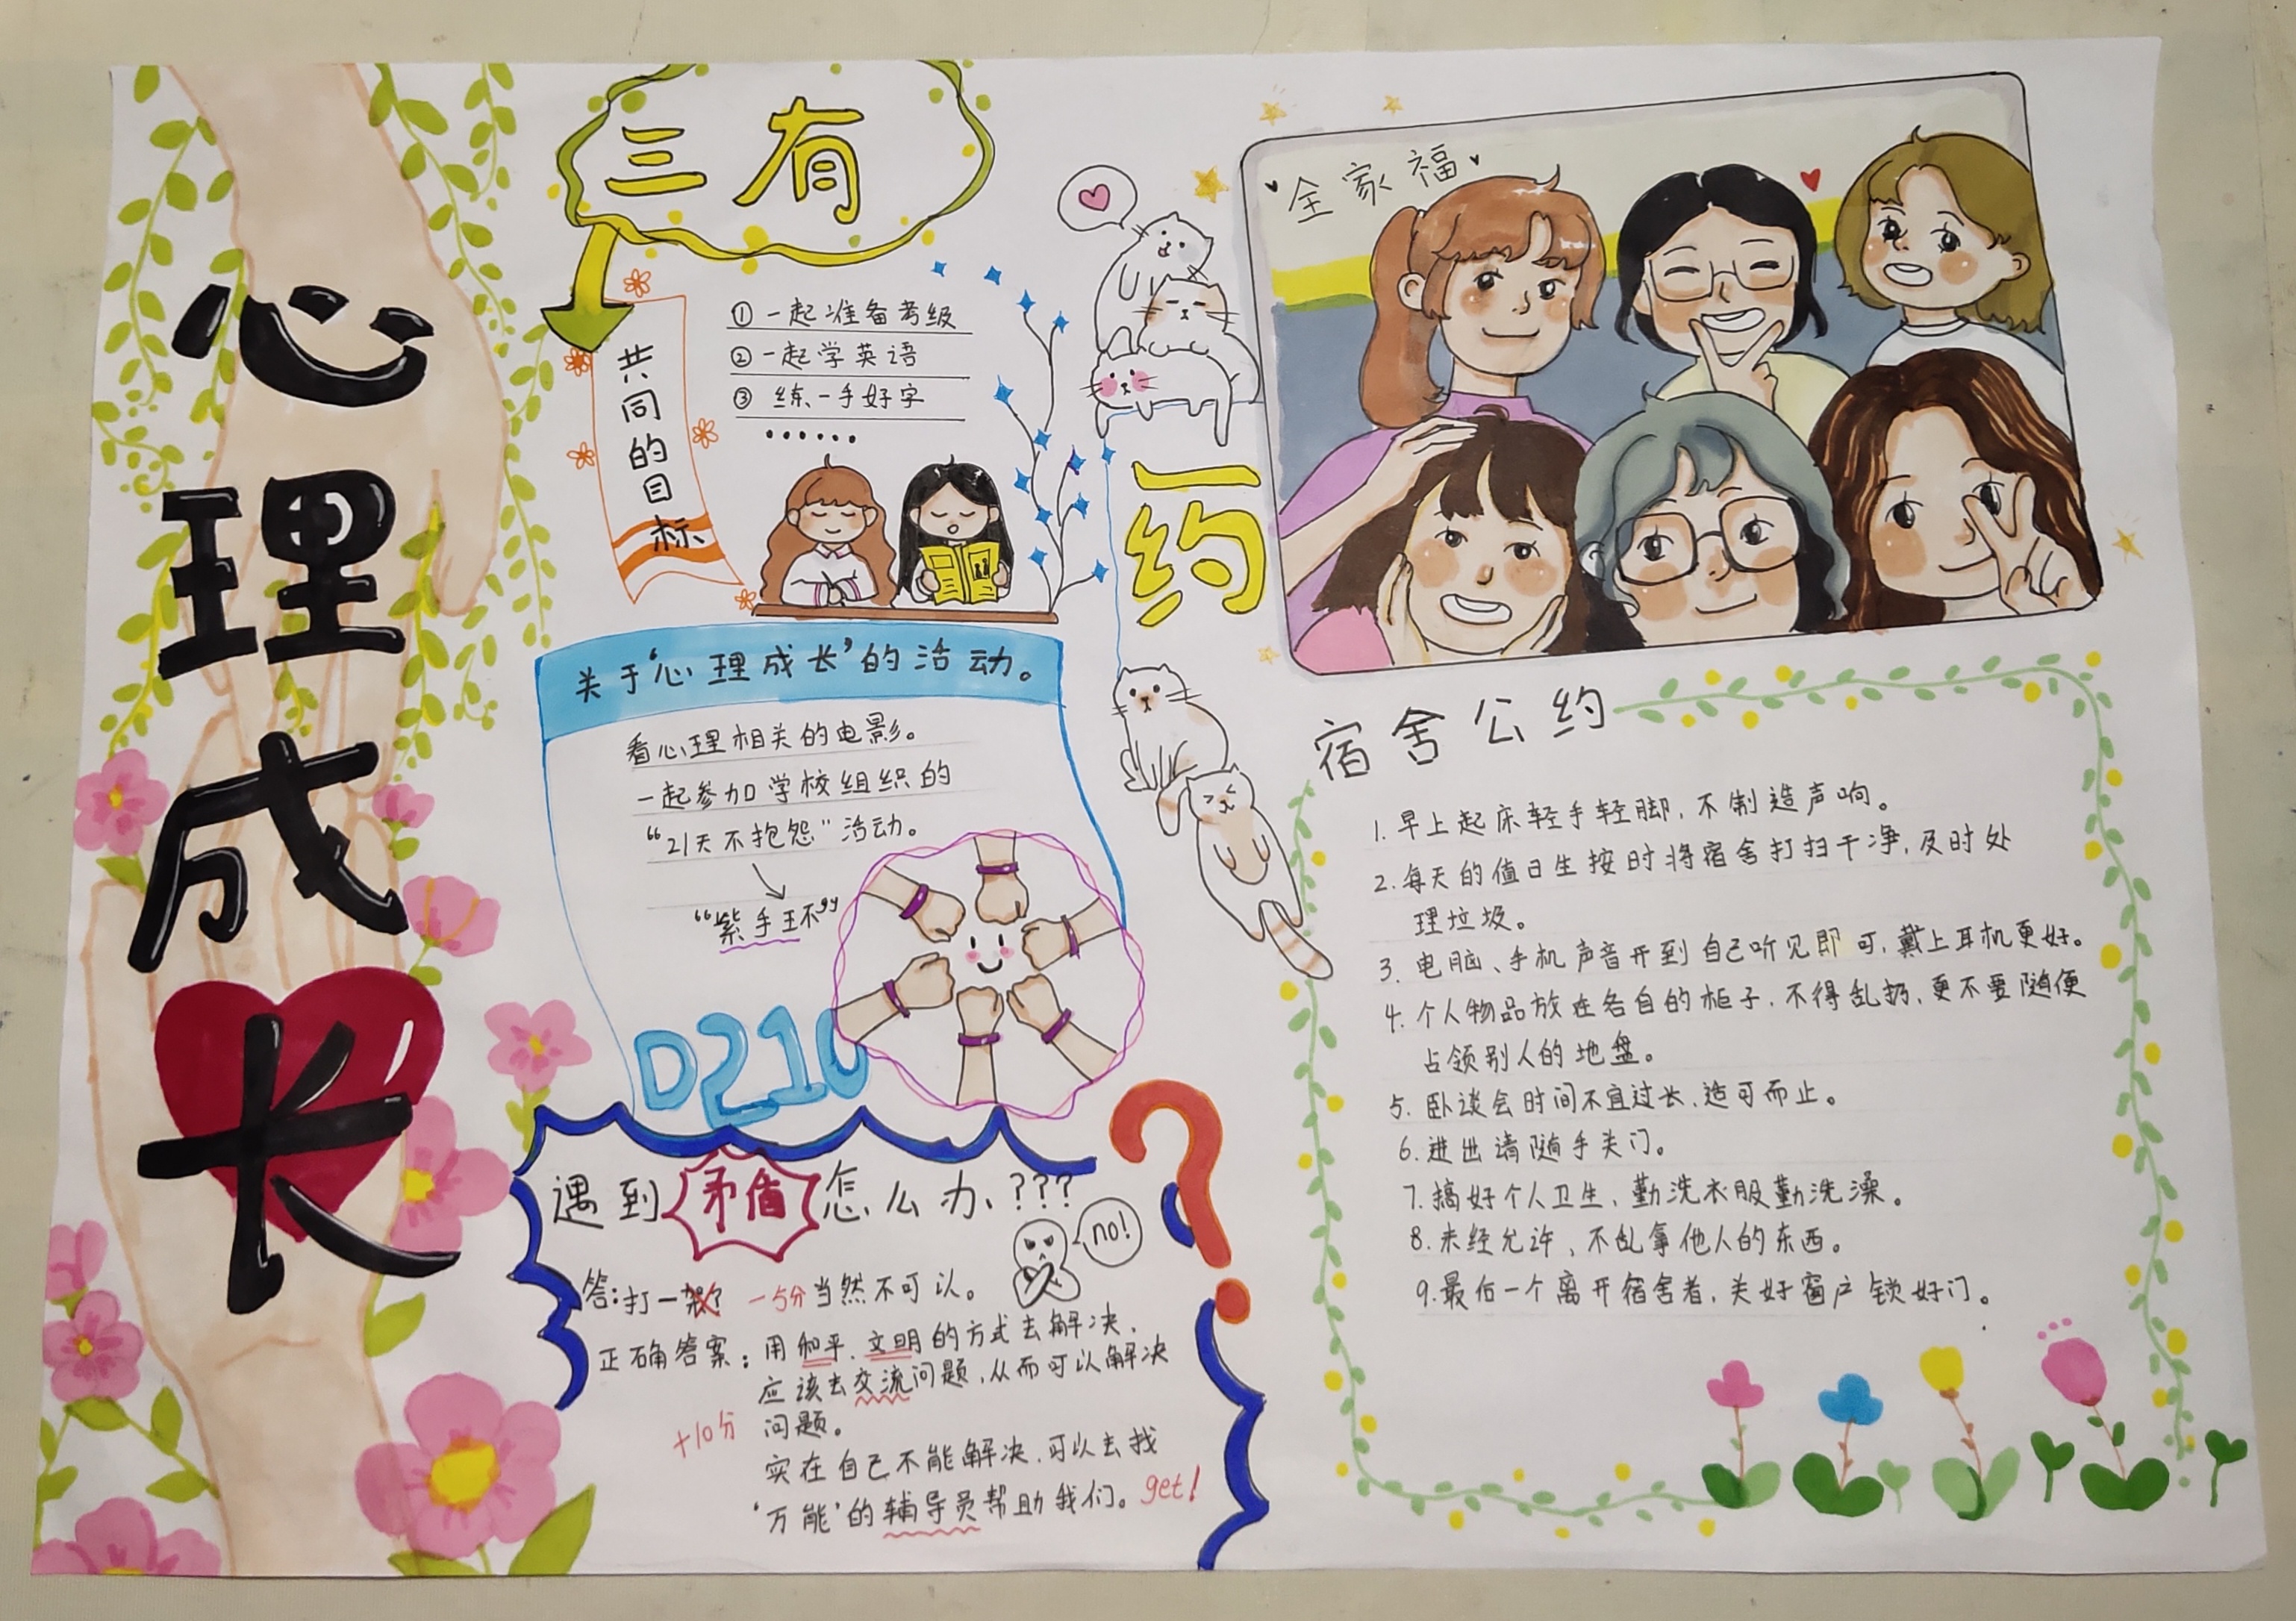 心理成长
三有
共同的目标
① 一起准备考级
② 一起学英语
③ 练一手好字
......
关于‘心理成长’的活动。
看心理相关的电影。
一起参加学校组织的
“21天不抱怨”活动。
“紫手王不”
D210
遇到矛盾怎么办、???
no!
答:打一架? -5分 当然不可以。
正确答案:用和平、文明的方式去解决,
应该去交流问题,从而可以解决
+10分 问题。
实在自己不能解决,可以去找
‘万能’的辅导员帮助我们。get!
一约
全家福
宿舍公约
1. 早上起床轻手轻脚,不制造声响。
2. 每天的值日生按时将宿舍打扫干净,及时处
理垃圾。
3. 电脑、手机声音开到自己听见即可,戴上耳机更好。
4. 个人物品放在各自的柜子,不得乱扔,更不要随便
占领别人的地盘。
5. 卧谈会时间不宜过长,适可而止。
6. 进出请随手关门。
7. 搞好个人卫生,勤洗衣服勤洗澡。
8. 未经允许,不乱拿他人的东西。
9. 最后一个离开宿舍者,关好窗户锁好门。